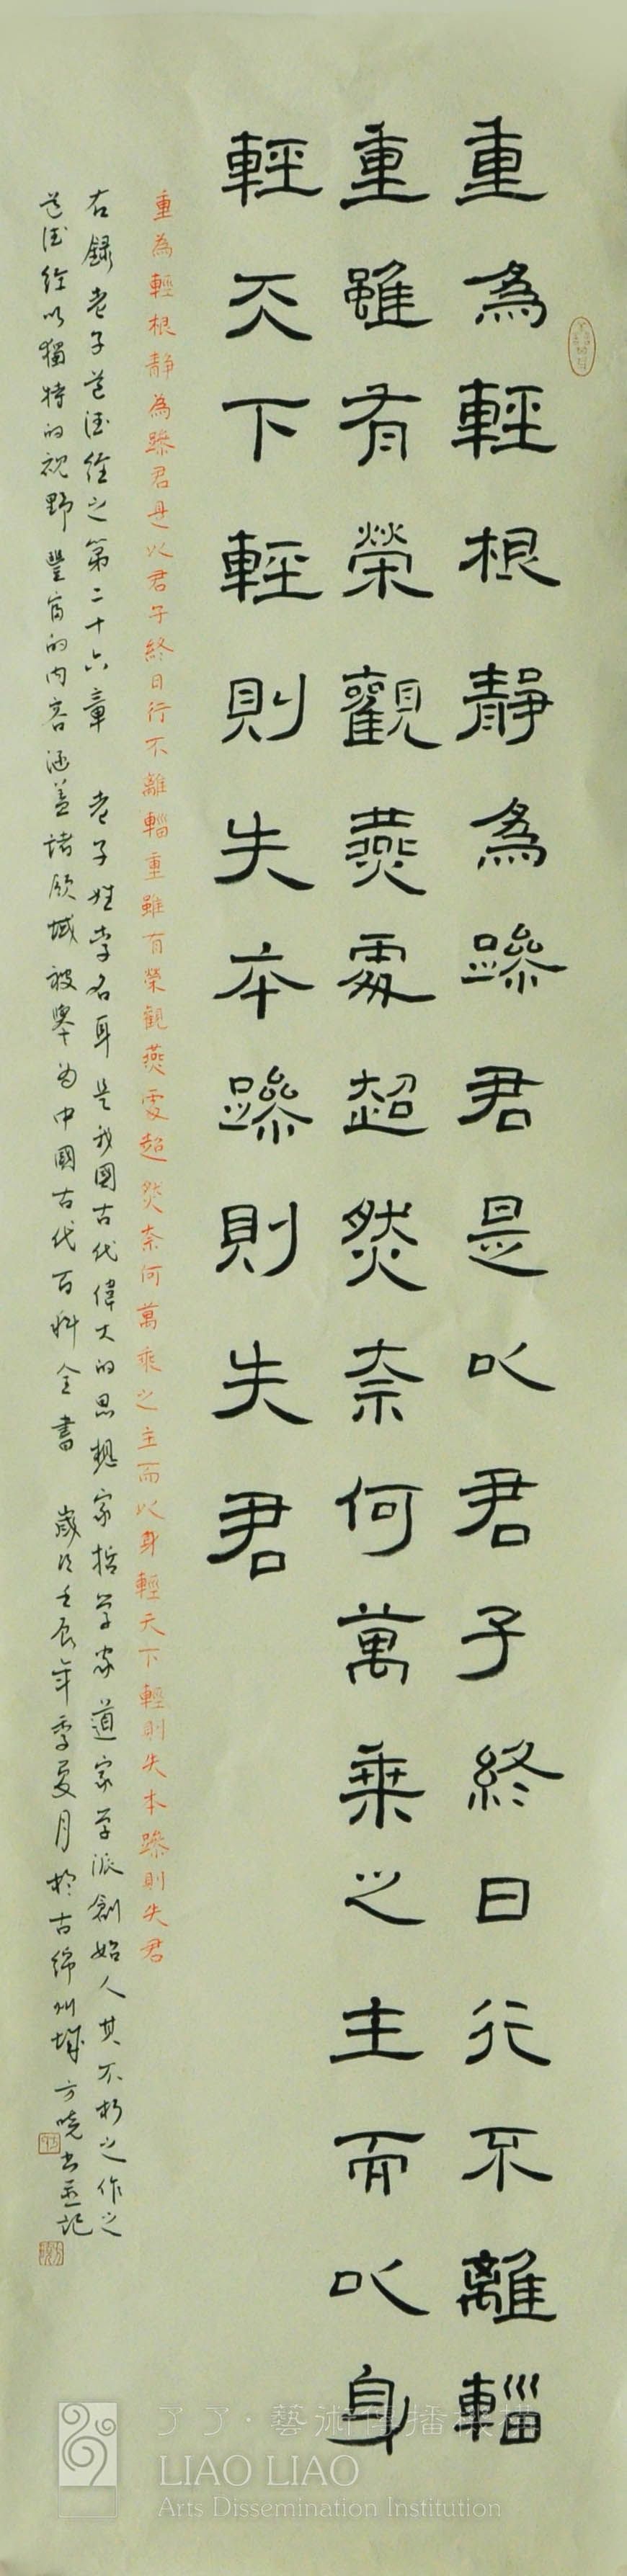 重為輕根靜為躁君是以君子終日行不離輜
重雖有榮觀燕處超然奈何萬乘之主而以身
輕天下輕則失本躁則失君
重為輕根靜為躁君是以君子終日行不離輜重雖有榮觀燕處超然奈何萬乘之主而以身輕天下輕則失本躁則失君
右録老子道德經之第二十六章 老子姓李名耳是我國古代偉大的思想家哲學家道家學派創始人其不朽之作之
道德經以獨特的視野豐富的内容涵蓋諸領域被舉為中國古代百科全書 歲次壬辰年季夏月於古綿州城方曉書並記
了了·藝術傳播機構
LIAO LIAO
Arts Dissemination Institution